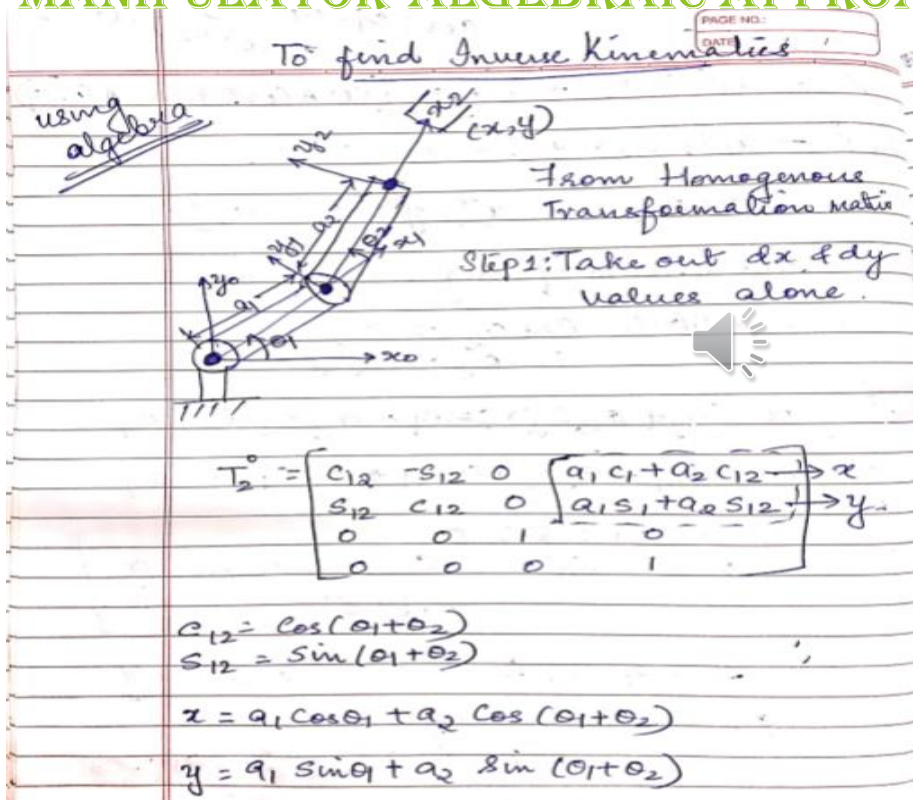 MANIPULATOR ALGEBRAIC
PAGE NO.:
DATE
To find Inverse Kinematics
using
algebra
x2
(x,y)
y2
From Homogenous
Transformation
a2
θ2
x1
y1
Step1: Take out dx & dy
values alone.
y0
a1
θ1
x0
T₂⁰ = [ C12 -S12 0 a1 c1 + a2 c12 → x
S12 C12 0 a1 s1 + a2 s12 → y
0 0 1 0
0 0 0 1 ]
C12 = Cos(θ1+θ2)
S12 = Sin(θ1+θ2)
x = a1 Cosθ1 + a2 Cos(θ1+θ2)
y = a1 Sinθ1 + a2 Sin(θ1+θ2)